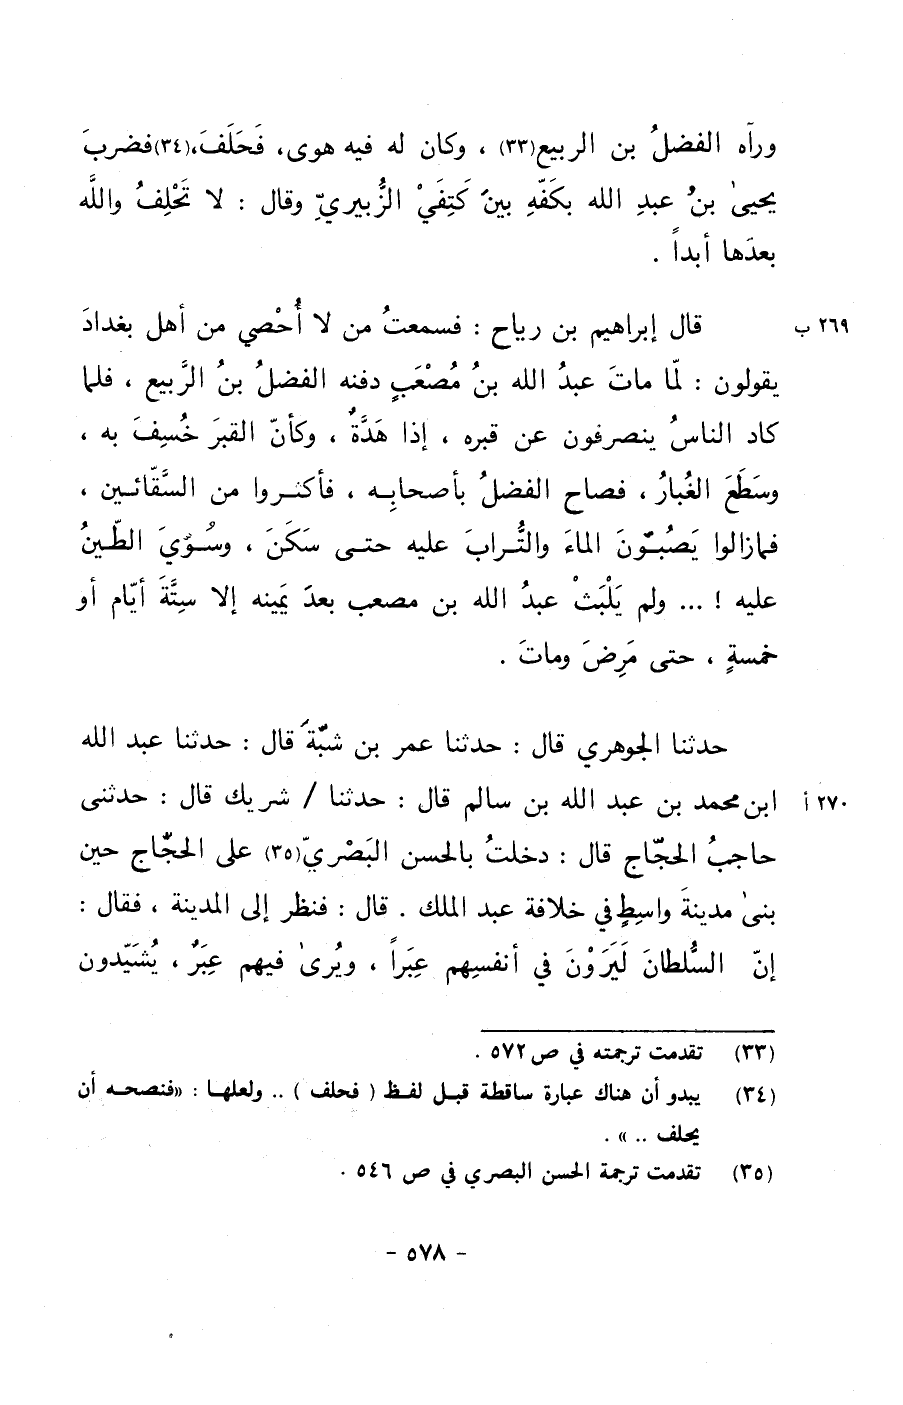 ورآه الفضلُ بن الربيع(٣٣) ، وكان له فيه هوى، فَحَلَفَ،(٣٤)فضربَ
يحيىٰ بنُ عبدِ الله بكَفّهِ بينَ كَتِفَيْ الزُّبيريّ وقال : لا تَحْلِفُ واللَّه
بعدَها أبداً .
٢٦٩ ب قال إبراهيم بن رياح : فسمعتُ من لا أُحْصي من أهل بغدادَ
يقولون : لمّا ماتَ عبدُ الله بنُ مُصْعَبٍ دفنه الفضلُ بنُ الرَّبيع ، فلما
كاد الناسُ ينصرفون عن قبره ، إذا هَدَّةٌ ، وكأنّ القبرَ خُسِفَ به ،
وسَطَعَ الغُبارُ ، فصاح الفضلُ بأصحابِه ، فأكثروا من السَّقّائين ،
فمازالوا يَصُبّونَ الماءَ والتُّرابَ عليه حتى سَكَنَ ، وسُوِّيَ الطّينُ
عليه ! ... ولم يَلْبَثْ عبدُ الله بن مصعب بعدَ يمينه إلا ستَّةَ أيّام أو
خمسةٍ ، حتى مَرِضَ وماتَ .
حدثنا الجوهري قال : حدثنا عمر بن شبّةَ قال : حدثنا عبد الله
٢٧٠ أ ابن محمد بن عبد الله بن سالم قال : حدثنا / شريك قال : حدثني
حاجبُ الحجّاج قال : دخلتُ بالحسن البَصْريّ(٣٥) على الحجّاج حين
بنىٰ مدينةَ واسِطٍ في خلافة عبد الملك . قال : فنظر إلى المدينة ، فقال :
إنّ السُّلطانَ لَيَرَوْنَ في أنفسِهم عِبَراً ، ويُرىٰ فيهم عِبَرٌ ، يُشَيّدون
(٣٣) تقدمت ترجمته في ص ٥٧٢ .
(٣٤) يبدو أن هناك عبارة ساقطة قبل لفظ ( فحلف ) .. ولعلها : «فنصحه أن
يحلف .. » .
(٣٥) تقدمت ترجمة الحسن البصري في ص ٥٤٦ .
- ٥٧٨ -